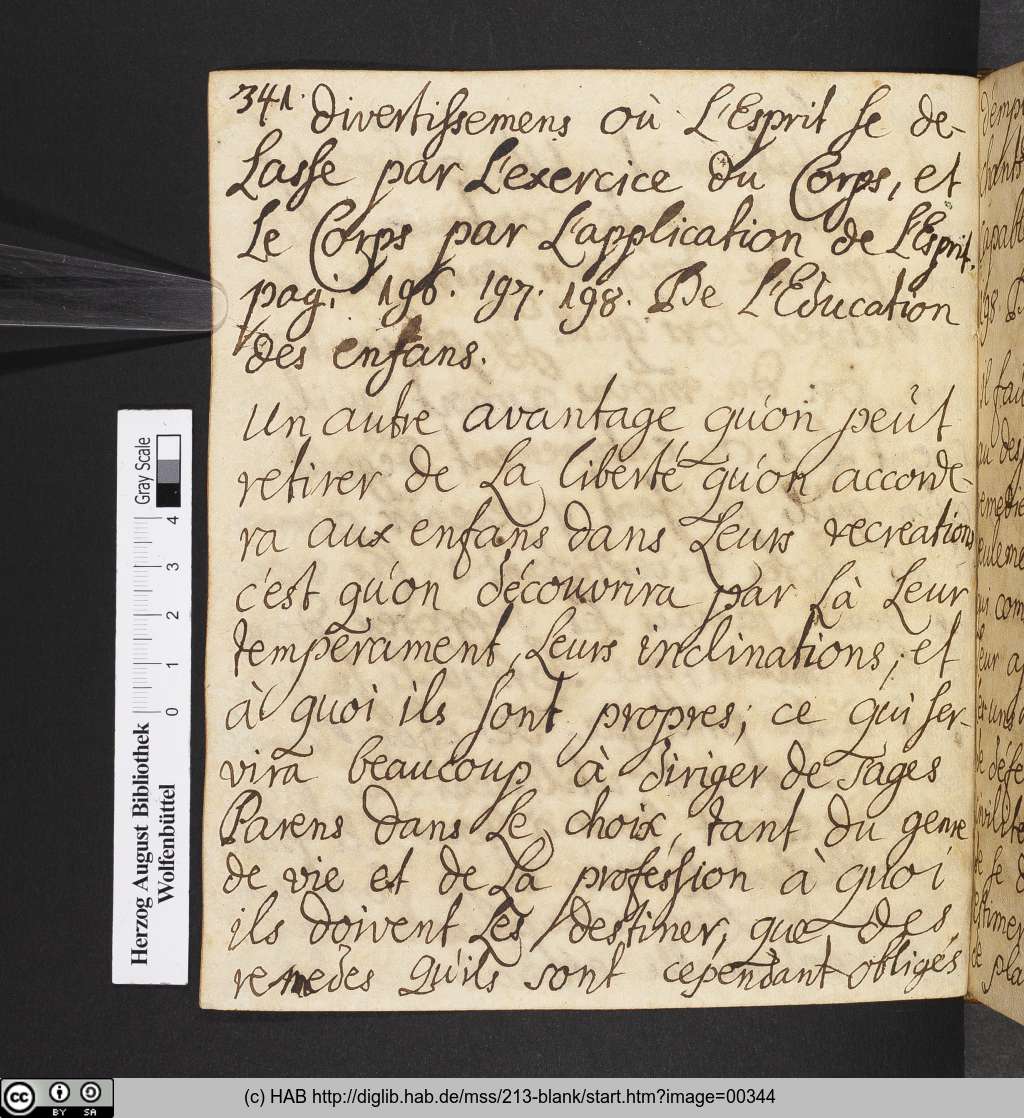 341. divertissemens où L'Esprit se de-
Lasse par L'exercice du Corps, et
Le Corps par L'application de L'Esprit.
pag: 196. 197. 198. De L'Education
des enfans.
Un autre avantage qu'on peût
retirer de La liberté qu'on accorde-
ra aux enfans dans Leurs recreations
c'est qu'on découvrira par Là Leur
temperament, Leurs inclinations, et
à quoi ils sont propres; ce qui ser-
vira beaucoup à diriger de sages
Parens dans Le choix, tant du genre
de vie et de La profession à quoi
ils doivent Les destiner, que des
remedes qu'ils sont cependant obligés
Herzog August Bibliothek
Wolfenbüttel
0 1 2 3 4
Gray Scale
cc BY SA
(c) HAB http://diglib.hab.de/mss/213-blank/start.htm?image=00344